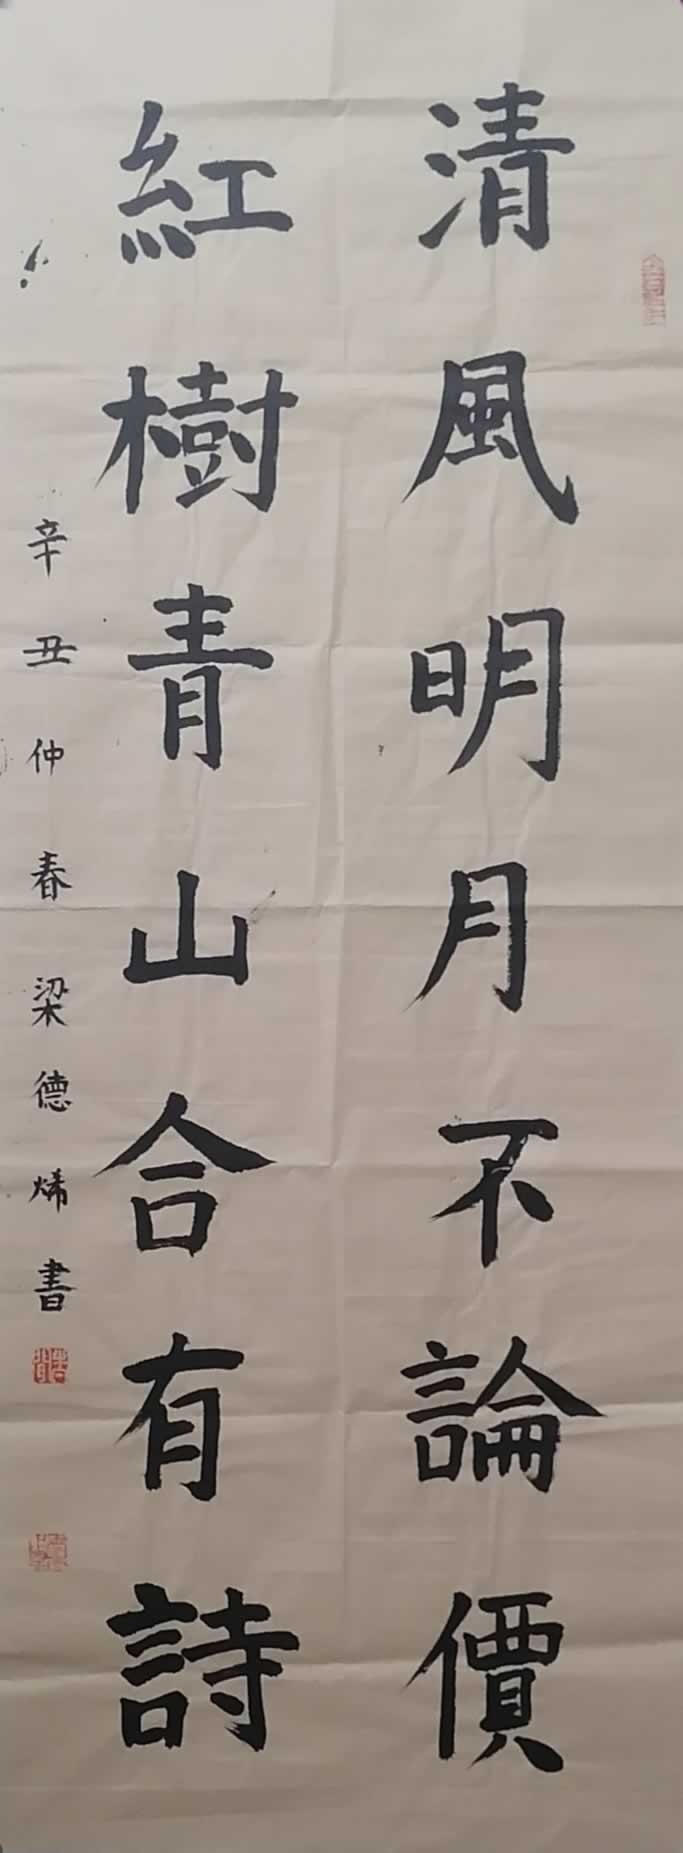 清風明月不論價
紅樹青山合有詩
辛丑仲春梁德烯書